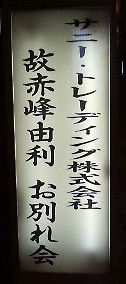 サニー・トレーディング株式会社
故赤峰由利 お別れ会